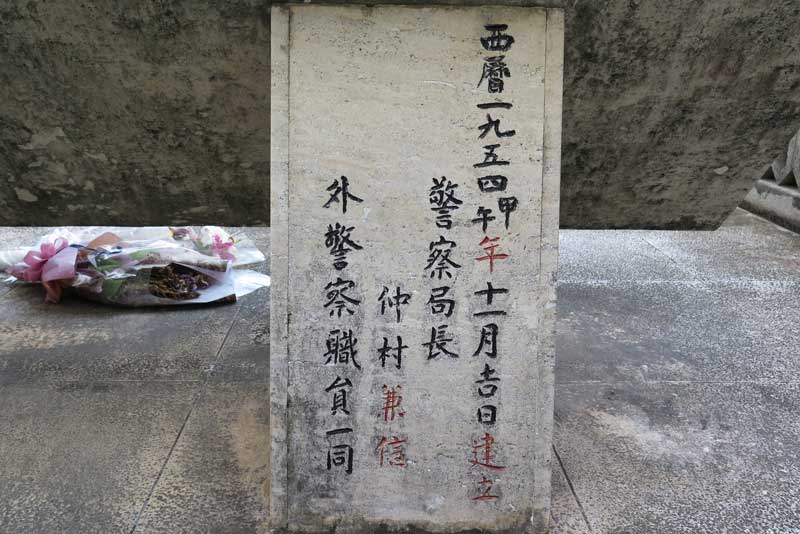 西曆一九五四甲午年十一月吉日建立
警察局長
仲村兼信
外警察職員一同